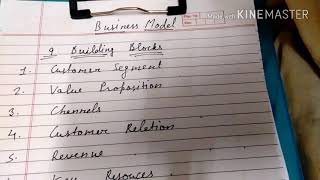 Business Model
Made with KINEMASTER
9 Building Blocks
1. Customer Segment
2. Value Proposition
3. Channels
4. Customer Relation
5. Revenue
Key Resouces